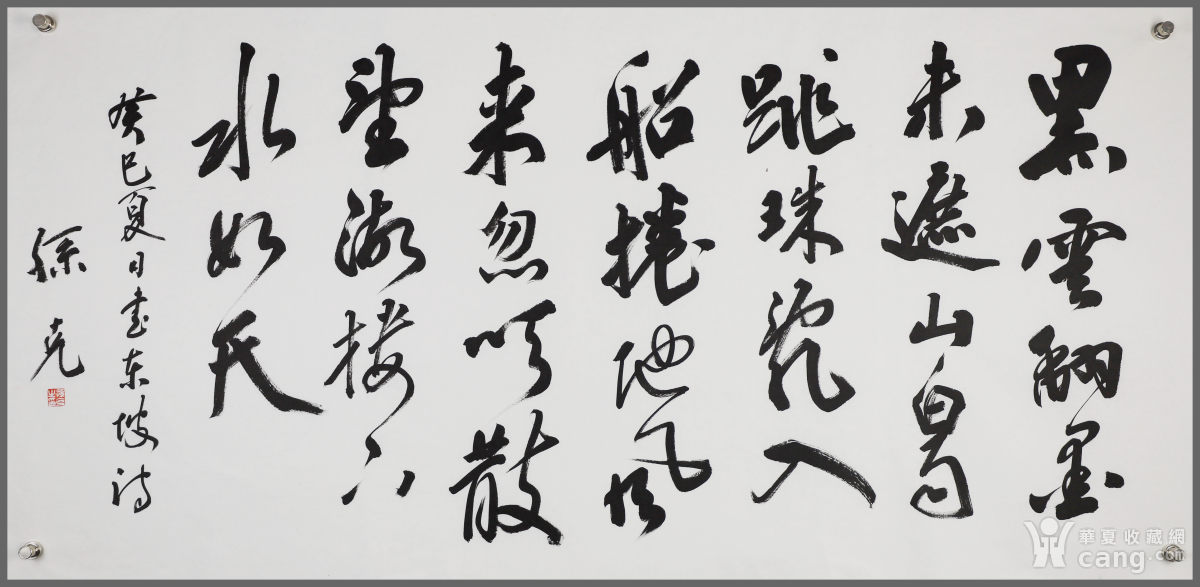 黑雲翻墨
未遮山白雨
跳珠亂入
船捲地風
来忽吹散
望湖楼下
水如天
癸巳夏日书东坡诗
徐克
華夏收藏網
cang.com